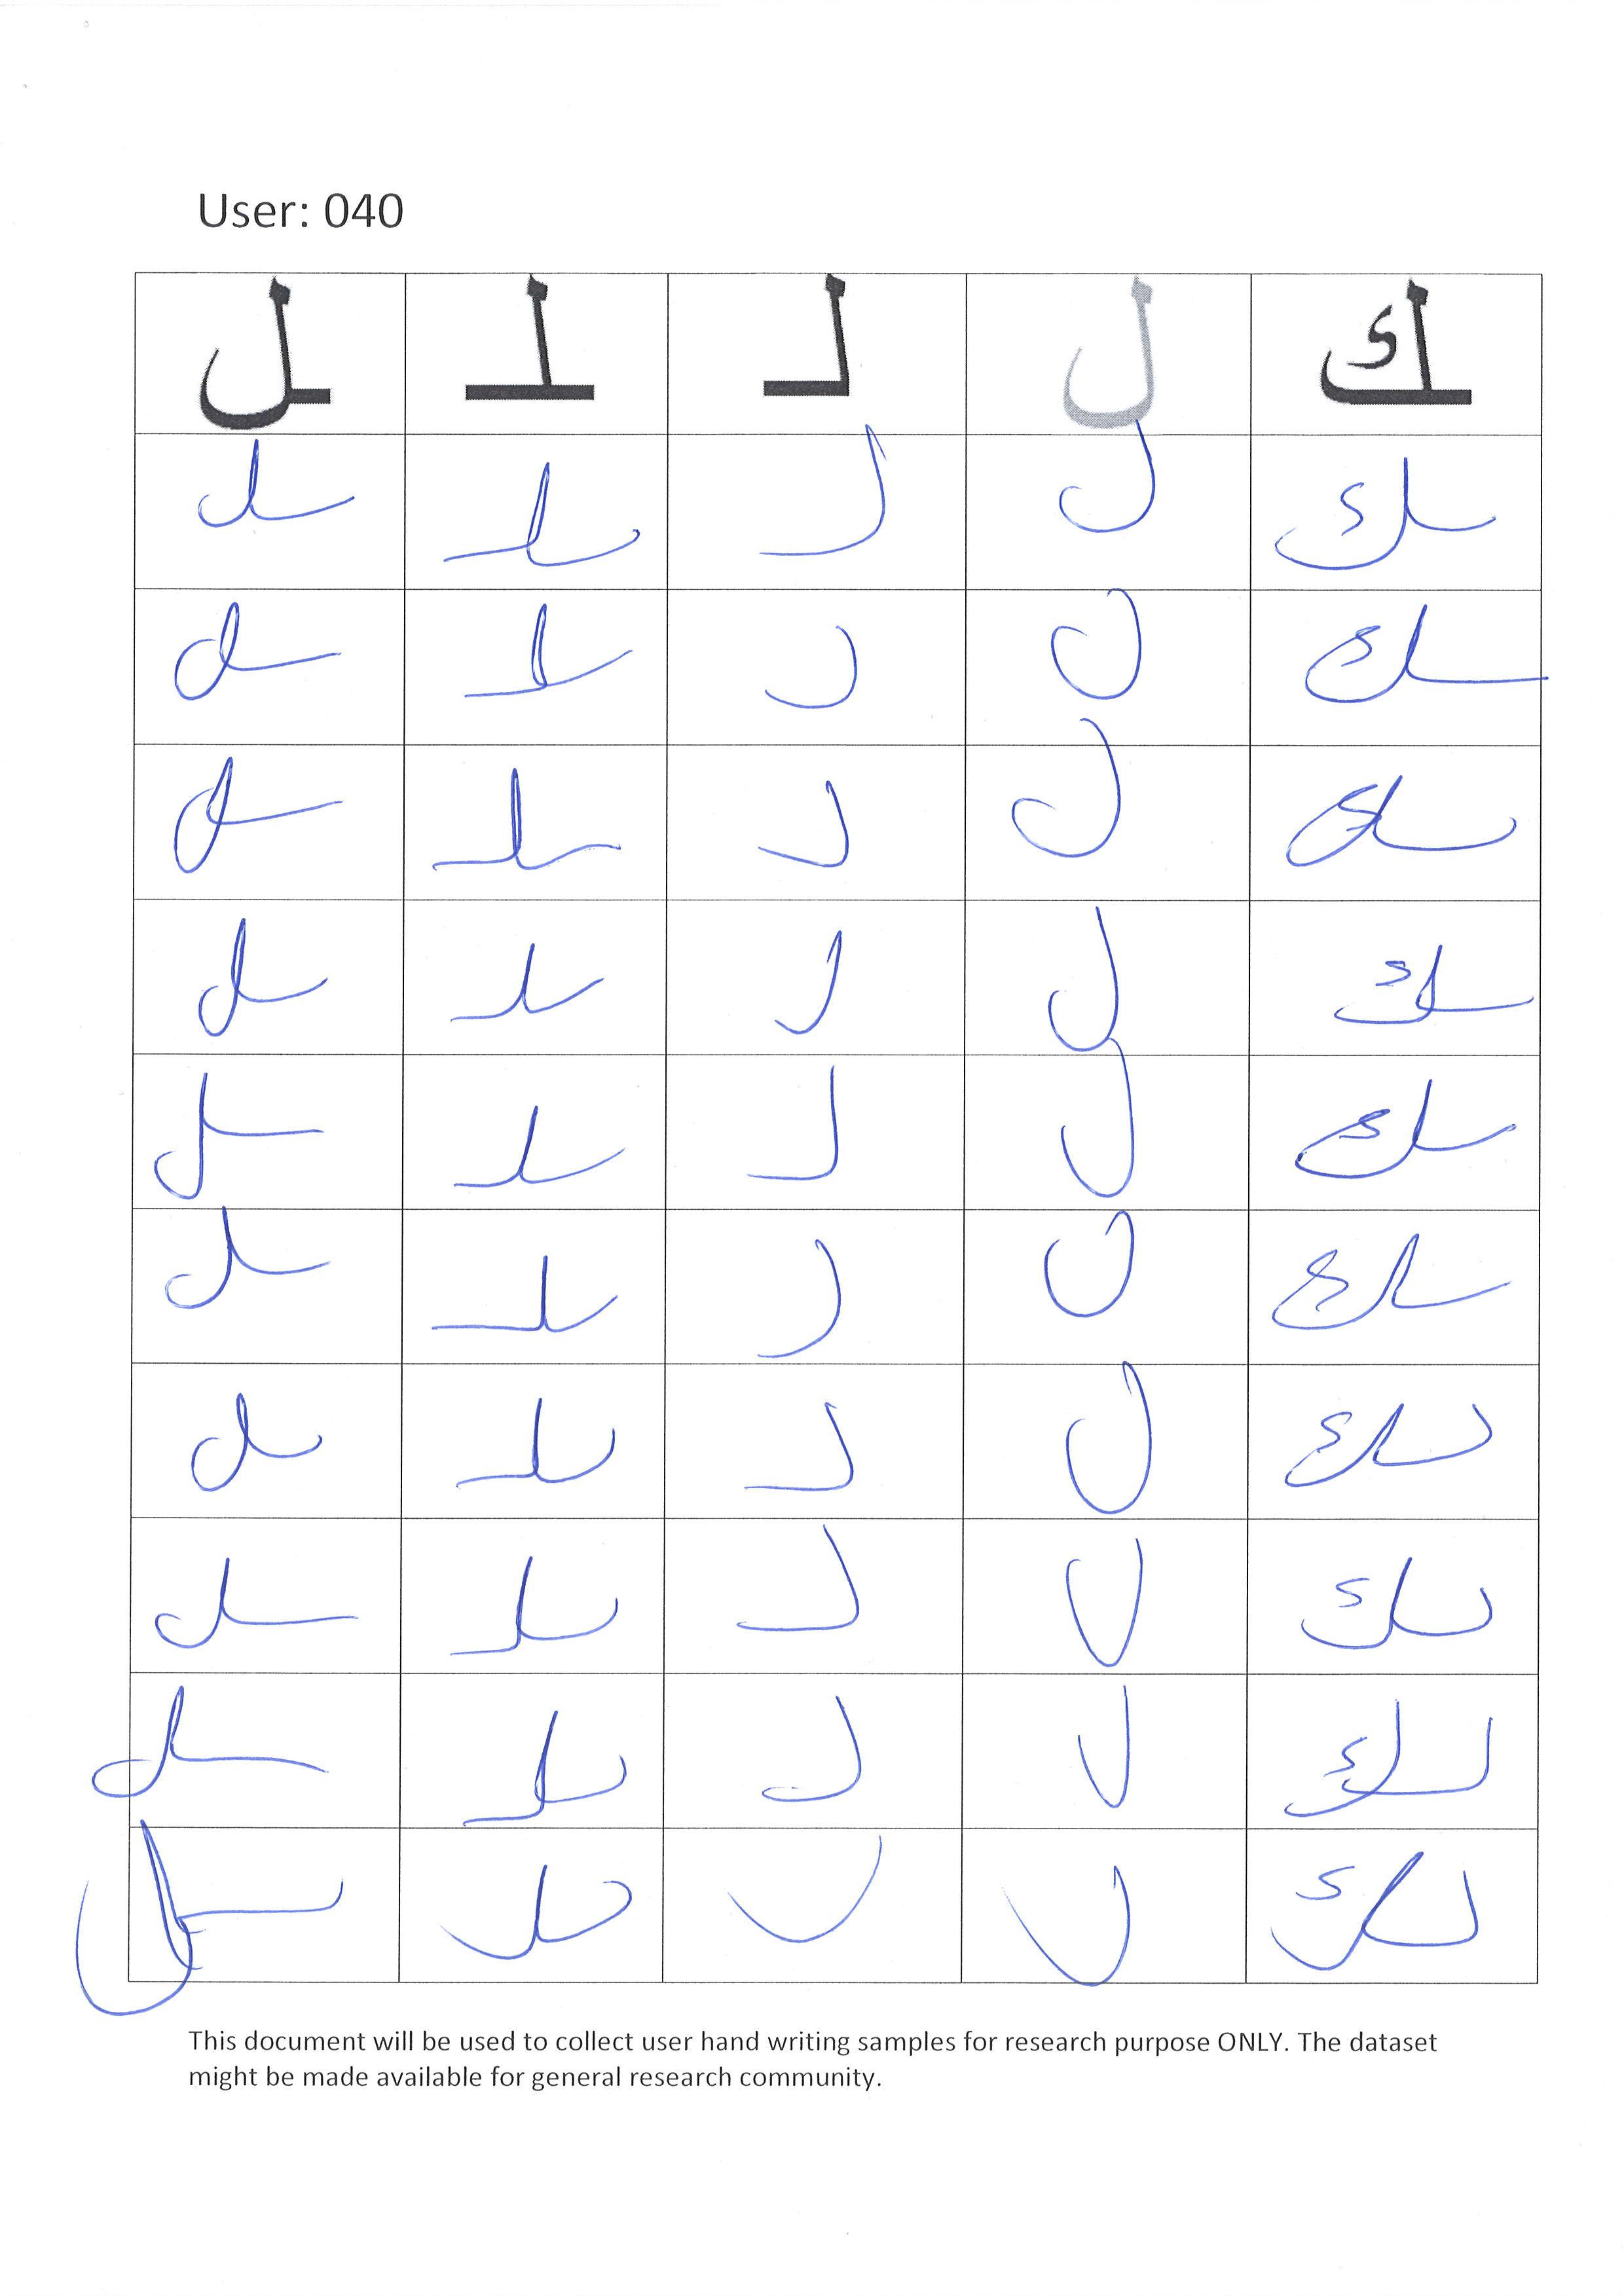 User: 040
ـل ـلـ لـ ل ـك
ـل ـلـ لـ ل ـك
ـل ـلـ لـ ل ـك
ـل ـلـ لـ ل ـك
ـل ـلـ لـ ل ـك
ـل ـلـ لـ ل ـك
ـل ـلـ لـ ل ـك
ـل ـلـ لـ ل ـك
ـل ـلـ لـ ل ـك
ـل ـلـ لـ ل ـك
ـل ـلـ لـ ل ـك
This document will be used to collect user hand writing samples for research purpose ONLY. The dataset
might be made available for general research community.